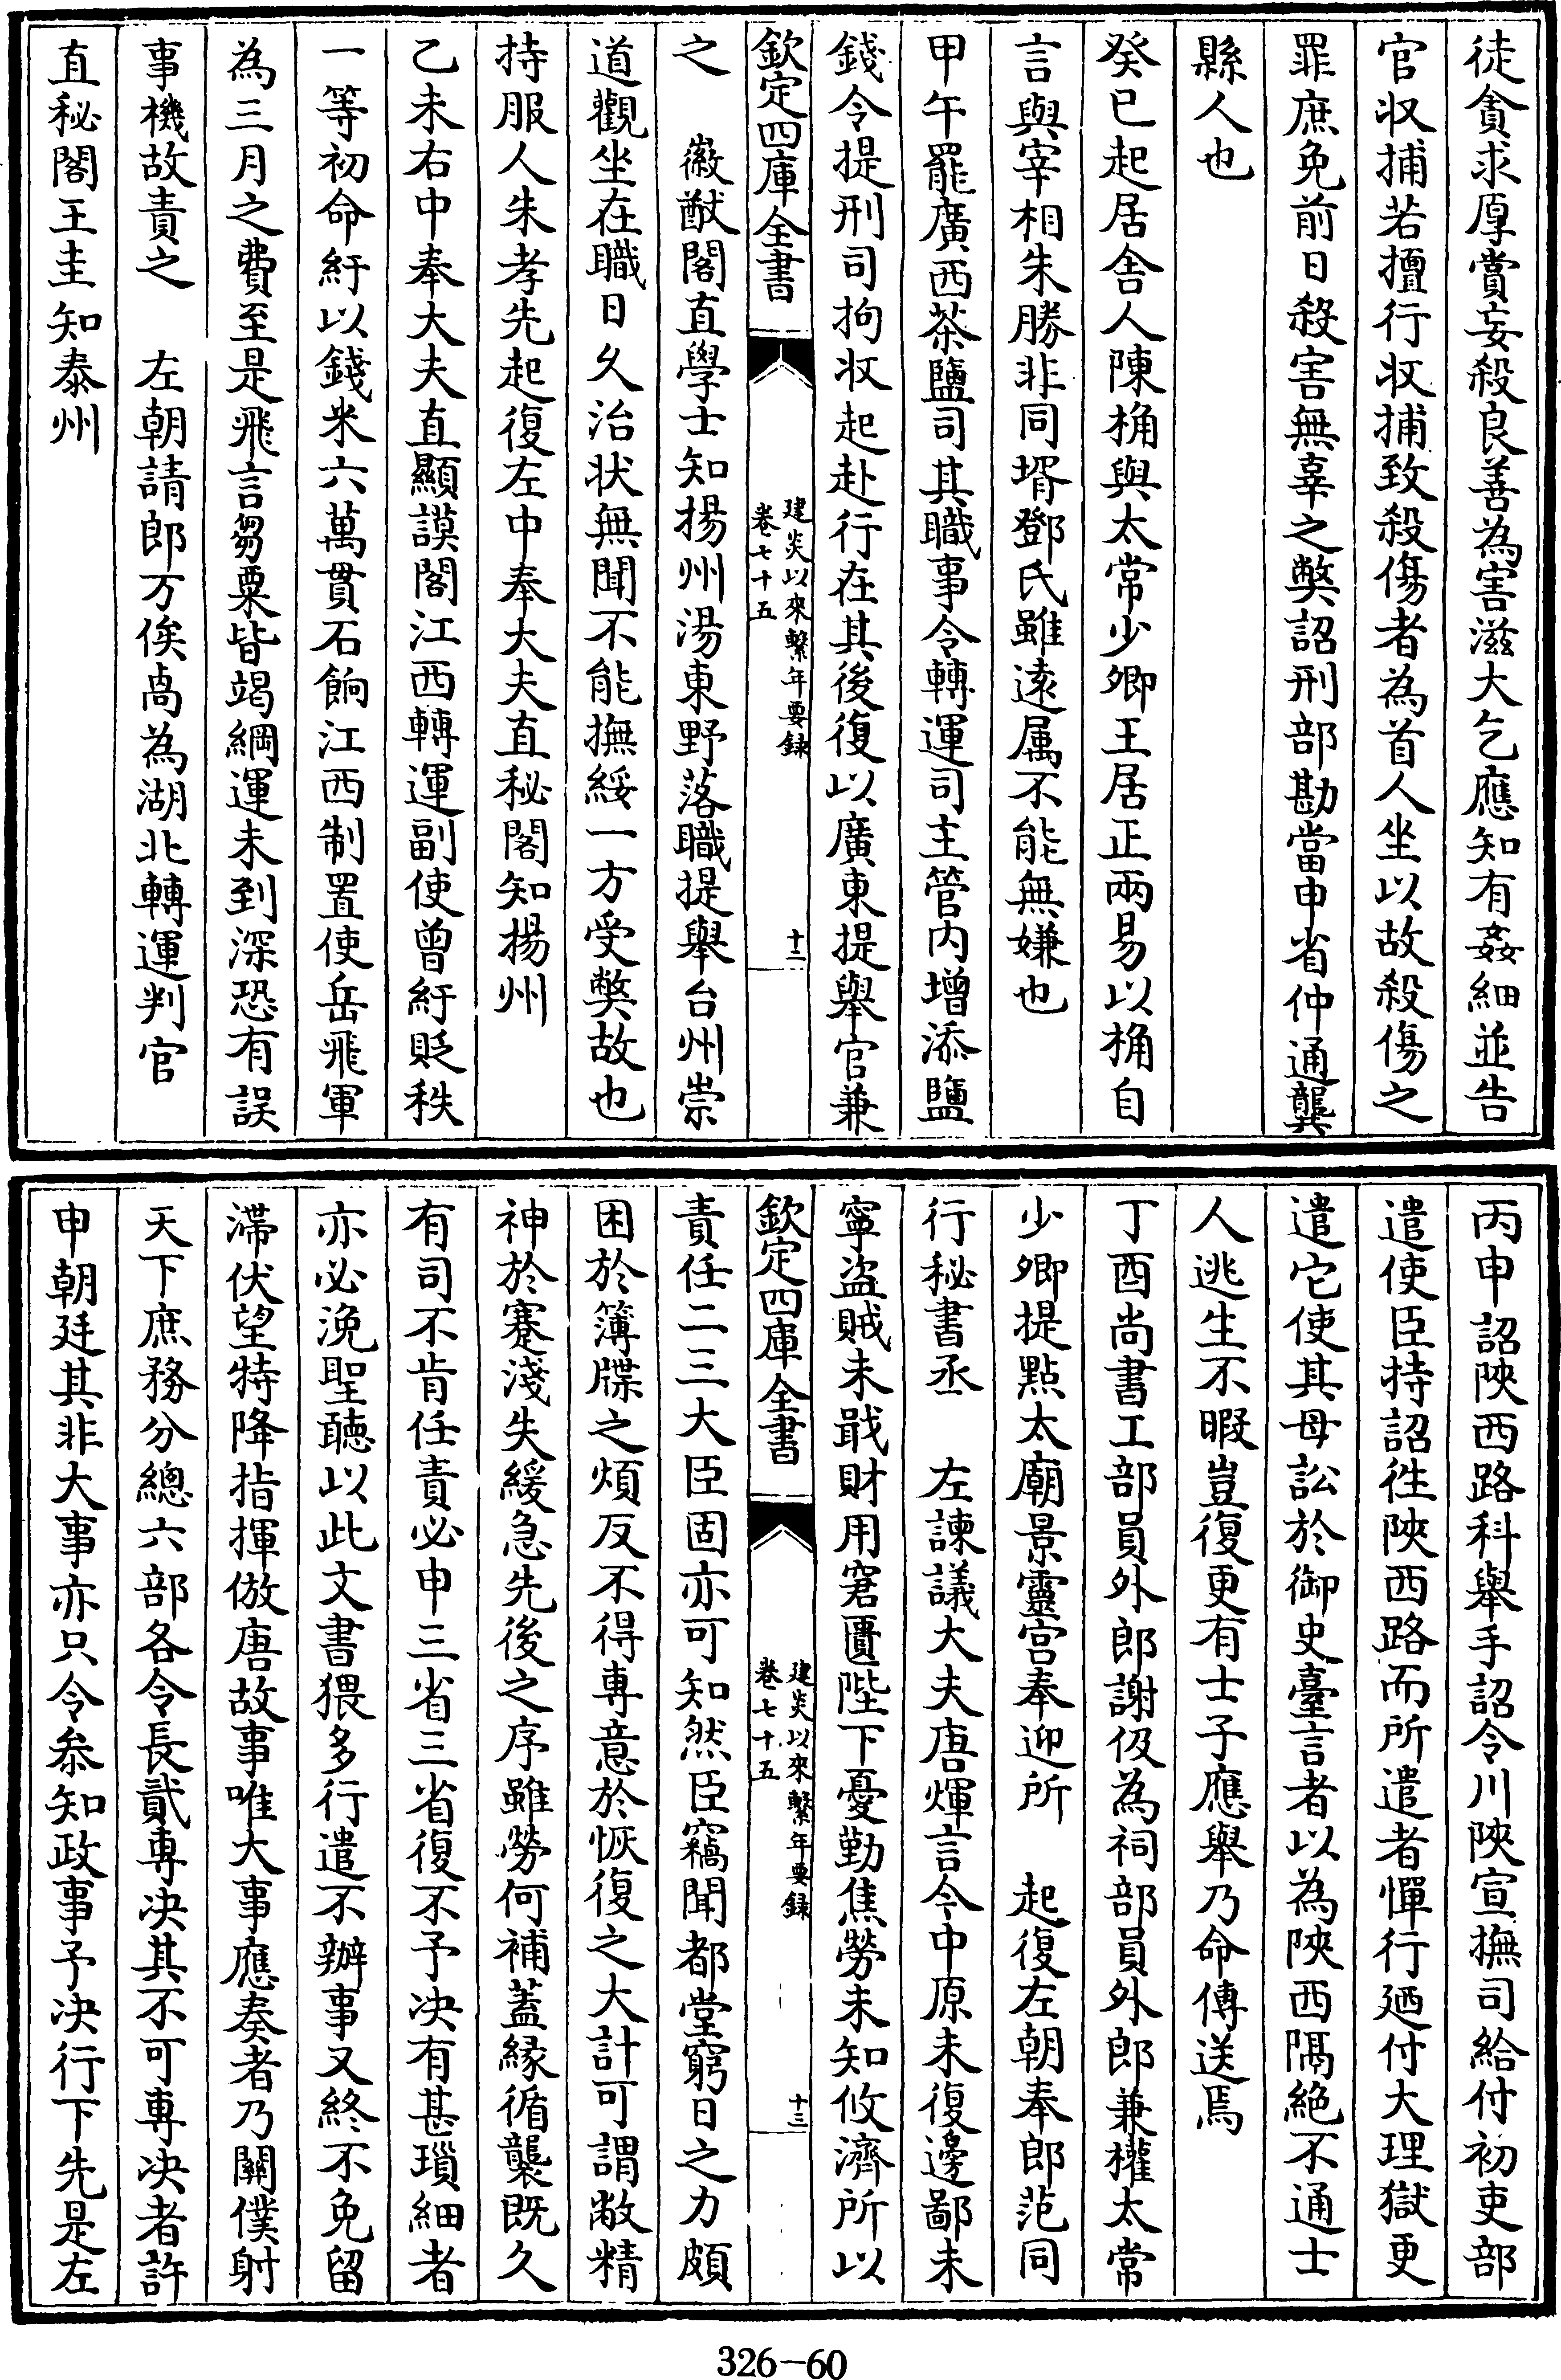 徒貪求厚賞妄殺良善為害滋大乞應知有姦細並告
官收捕若擅行收捕致殺傷者為首人坐以故殺傷之
罪庶免前日殺害無辜之弊詔刑部勘當申省仲通龔
縣人也
癸巳起居舍人陳桷與太常少卿王居正兩易以桷自
言與宰相朱勝非同壻鄧氏雖遠属不能無嫌也
甲午罷廣西茶鹽司其職事令轉運司主管内增添鹽
錢令提刑司拘收起赴行在其後復以廣東提舉官兼
欽定四庫全書
建炎以來繫年要録
卷七十五
十二
之　徽猷閣直學士知揚州湯東野落職提舉台州崇
道觀坐在職日久治状無聞不能撫綏一方受弊故也
持服人朱孝先起復左中奉大夫直秘閣知揚州
乙未右中奉大夫直顯謨閣江西轉運副使曾紆貶秩
一等初命紆以錢米六萬貫石餉江西制置使岳飛軍
為三月之費至是飛言芻粟皆竭綱運未到深恐有誤
事機故責之　左朝請郎万俟卨為湖北轉運判官
直秘閣王圭知泰州
丙申詔陜西路科舉手詔令川陜宣撫司給付初吏部
遣使臣持詔徃陜西路而所遣者憚行廼付大理獄更
遣它使其母訟於御史臺言者以為陜西隔絶不通士
人逃生不暇豈復更有士子應舉乃命傳送焉
丁酉尚書工部員外郎謝伋為祠部員外郎兼權太常
少卿提點太廟景靈宫奉迎所　起復左朝奉郎范同
行秘書丞　左諫議大夫唐煇言今中原未復邊鄙未
寧盗賊未戢財用窘匱陛下憂勤焦勞未知攸濟所以
欽定四庫全書
建炎以來繫年要録
卷七十五
十三
責任二三大臣固亦可知然臣竊聞都堂窮日之力頗
困於簿牒之煩反不得専意於恢復之大計可謂敝精
神於蹇淺失緩急先後之序雖勞何補蓋縁循襲既久
有司不肯任責必申三省三省復不予决有甚瑣細者
亦必浼聖聽以此文書猥多行遣不辦事又終不免留
滯伏望特降指揮倣唐故事唯大事應奏者乃關僕射
天下庶務分總六部各令長貳専决其不可専决者許
申朝廷其非大事亦只令叅知政事予决行下先是左
326-60